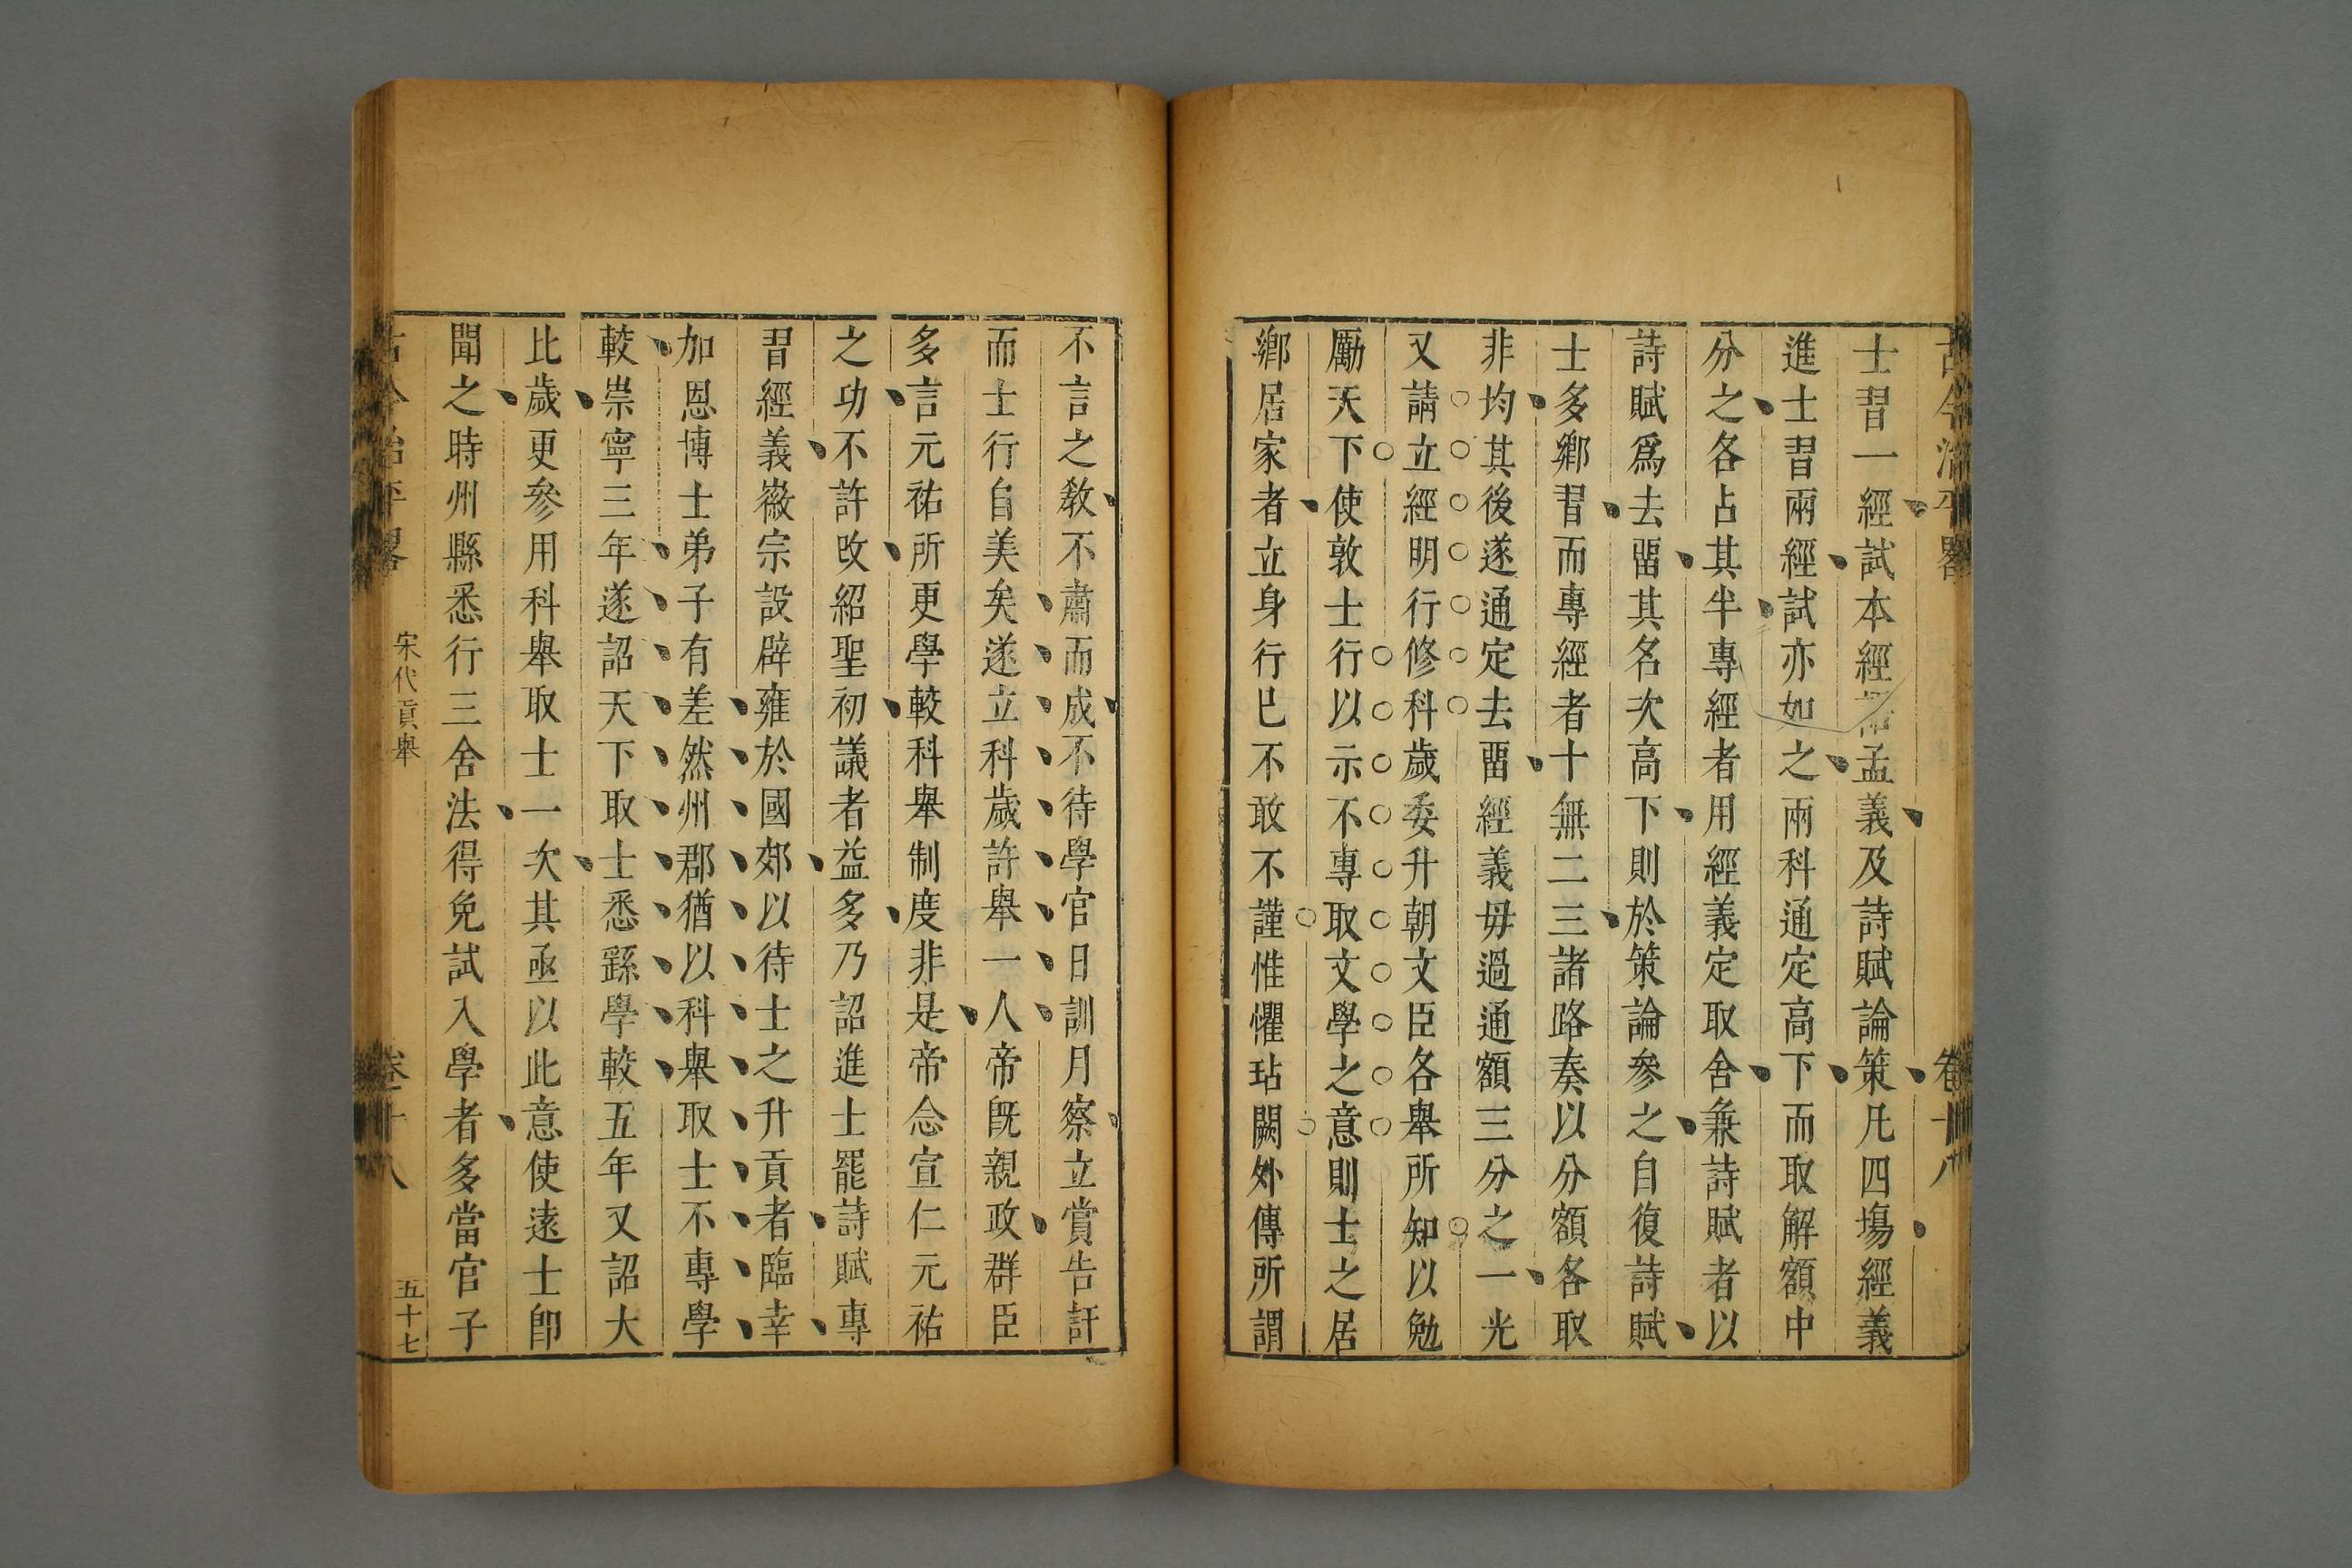 古今治平畧 卷十八
士習一經試本經語孟義及詩賦論策凡四塲經義
進士習兩經試亦如之兩科通定高下而取解額中
分之各占其半專經者用經義定取舍兼詩賦者以
詩賦爲去畱其名次高下則於策論參之自復詩賦
士多鄉習而專經者十無二三諸路奏以分額各取
非均其後遂通定去畱經義毋過通額三分之一光
又請立經明行修科歲委升朝文臣各舉所知以勉
勵天下使敦士行以示不專取文學之意則士之居
鄉居家者立身行已不敢不謹惟懼玷闕外傳所謂
不言之敎不肅而成不待學官日訓月察立賞告訐
而士行自美矣遂立科歲許舉一人帝旣親政群臣
多言元祐所更學較科舉制度非是帝念宣仁元祐
之功不許改紹聖初議者益多乃詔進士罷詩賦專
習經義徽宗設辟雍於國郊以待士之升貢者臨幸
加恩博士弟子有差然州郡猶以科舉取士不專學
較崇寧三年遂詔天下取士悉繇學較五年又詔大
比歲更參用科舉取士一次其亟以此意使遠士卽
聞之時州縣悉行三舍法得免試入學者多當官子
古今治平畧 宋代貢舉 卷十八 五十七